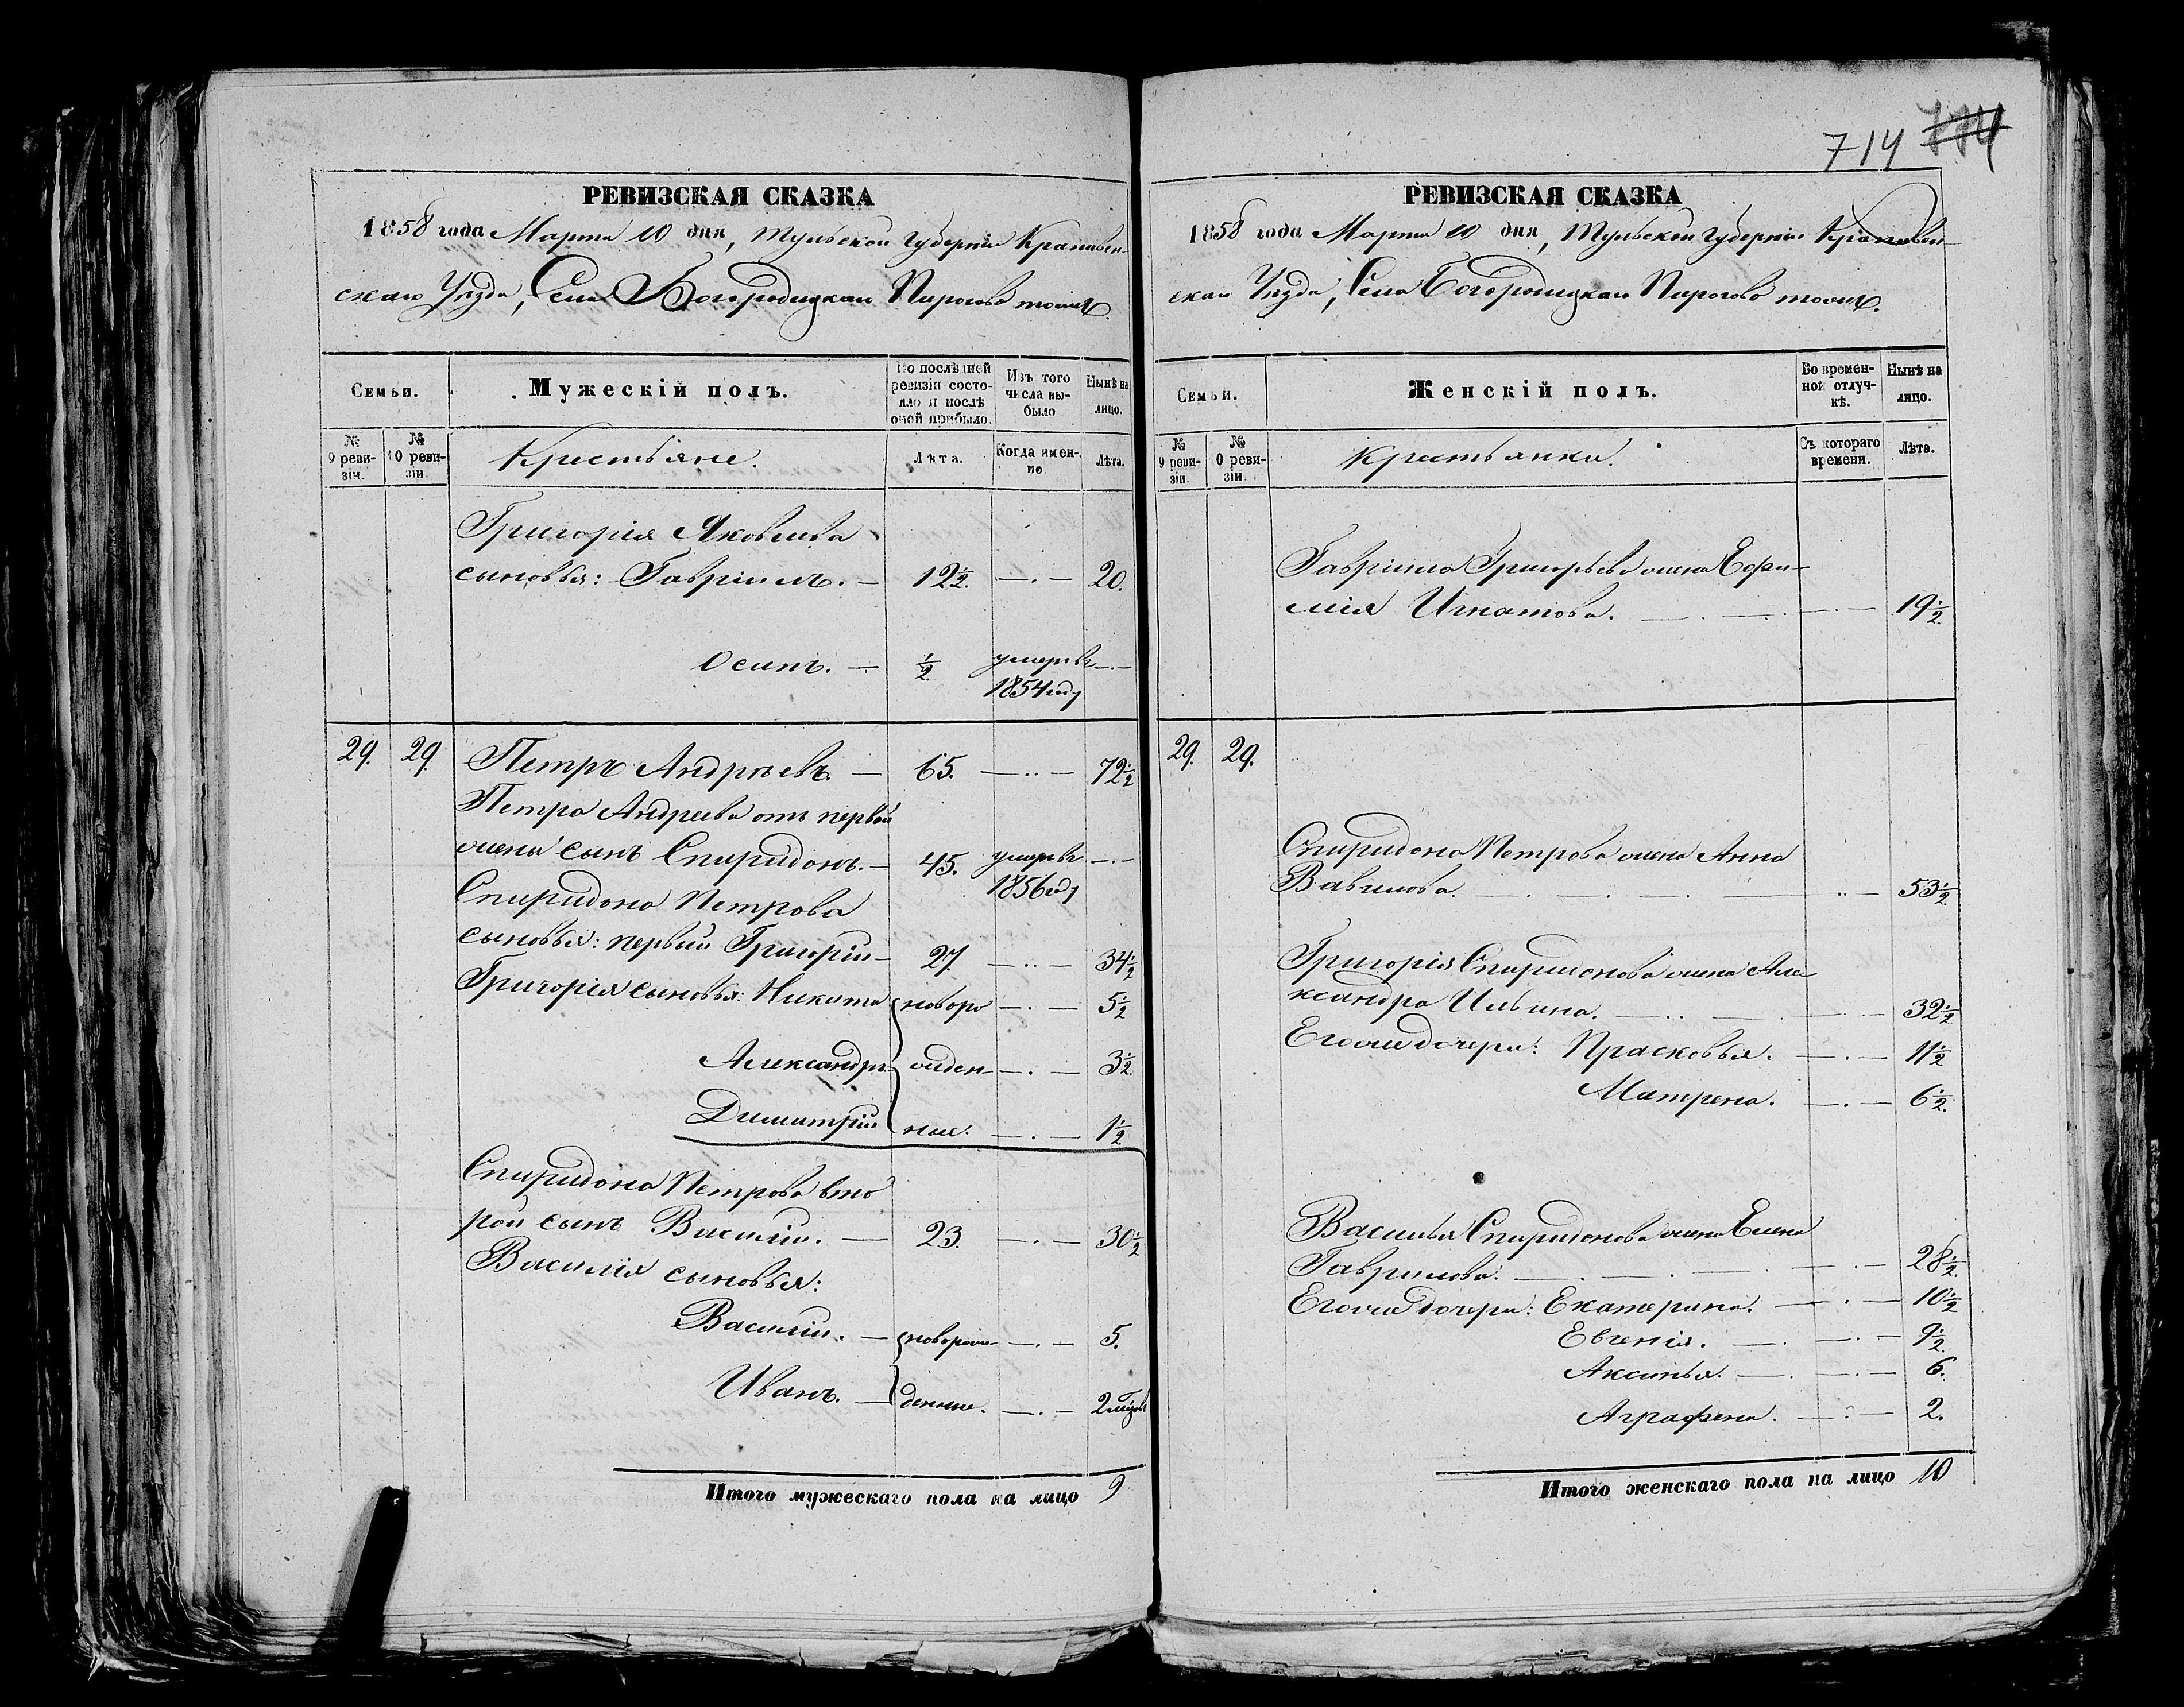 714 714
РЕВИЗСКАЯ СКАЗКА
1858 года Марта 10 дня, Тульской Губерніи Крапивен-
скаго Уѣзда, Села Богородицкаго Пирогово тожъ.
Семьи.
Мужескій полъ.
По послѣдней ревизіи состояло и послѣ оной прибыло.
Изъ того числа выбыло
Нынѣ на лицо.
№ 9 ревизіи.
№ 10 ревизіи.
Крестьяне.
Лѣта.
Когда именно.
Лѣта.
Григорія Яковлева
сыновья: Гавріилъ. — 12½. —.— 20.
Осипъ. — ½ умеръ въ —.—
1854 году
29. 29. Петръ Андрѣевъ — 65. —..— 72½
Петра Андреева отъ первой
жены сынъ Спиридонъ. — 45. умеръ въ —.—
1856 году
Спиридона Петрова
сыновья: первый Григорій — 27. —..— 34½
Григорія сыновья: Никита новоро —.— 5½
Александръ жден- —.— 3½
Димитрій ные. —.— 1½
Спиридона Петрова вто
рой сынъ Василій. — 23. —.— 30½
Василія сыновья:
Василій. — новорож- —.— 5.
Иванъ. — денные. —.— 2 мѣсяц
Итого мужескаго пола на лицо 9
РЕВИЗСКАЯ СКАЗКА
1858 года Марта 10 дня, Тульской Губерніи Крапивен-
скаго Уѣзда, Села Богородицкаго Пирогово тожъ.
Семьи.
Женскій полъ.
Во временной отлучкѣ.
Нынѣ на лицо.
№ 9 ревизіи.
№ 10 ревизіи.
Крестьянки.
Съ котораго времени.
Лѣта.
Гавріила Григорьева жена Ефи-
мія Игнатова. —.— 19½
29. 29.
Спиридона Петрова жена Анна
Вавилова. — 53½
Григорія Спиридонова жена Але
ксандра Ильина. — 32½
Его же дочери: Прасковья. —.— 11½
Матрена. —.— 6½.
Василья Спиридонова жена Елена
Гаврилова. — 28½.
Его же дочери: Екатерина. —.— 10½
Евгенія. —.— 9½
Аксинья. —.— 6.
Аграфена. —.— 2.
Итого женскаго пола на лицо 10